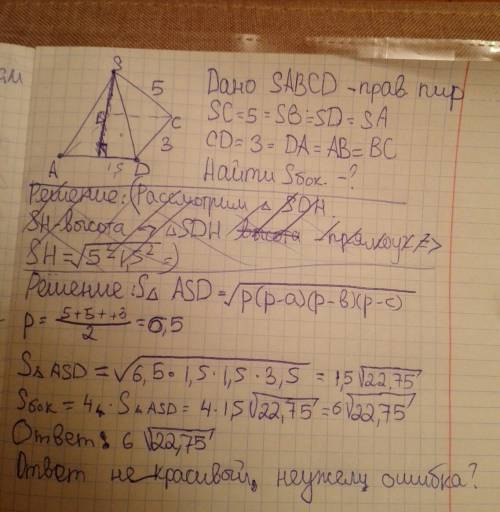 S
5
C
3
A
1,5
D
Дано SABCD - прав пир
SC=5=SB=SD=SA
CD=3=DA=AB=BC
Найти Sбок. -?
Решение: (Рассмотрим △ SDH.
SH-высота => △SDH высота -прямоуг =>
SH=√5²-1,5² =)
Решение: S△ ASD=√p(p-a)(p-в)(p-c)
p= 5+5++3/2 =6,5
S△ASD=√6,5•1,5•1,5•3,5 = 1,5√22,75
Sбок = 4 • S△ASD= 4•1,5√22,75=6√22,75
Ответ: 6 √22,75
Ответ не красивый, неужели ошибка?